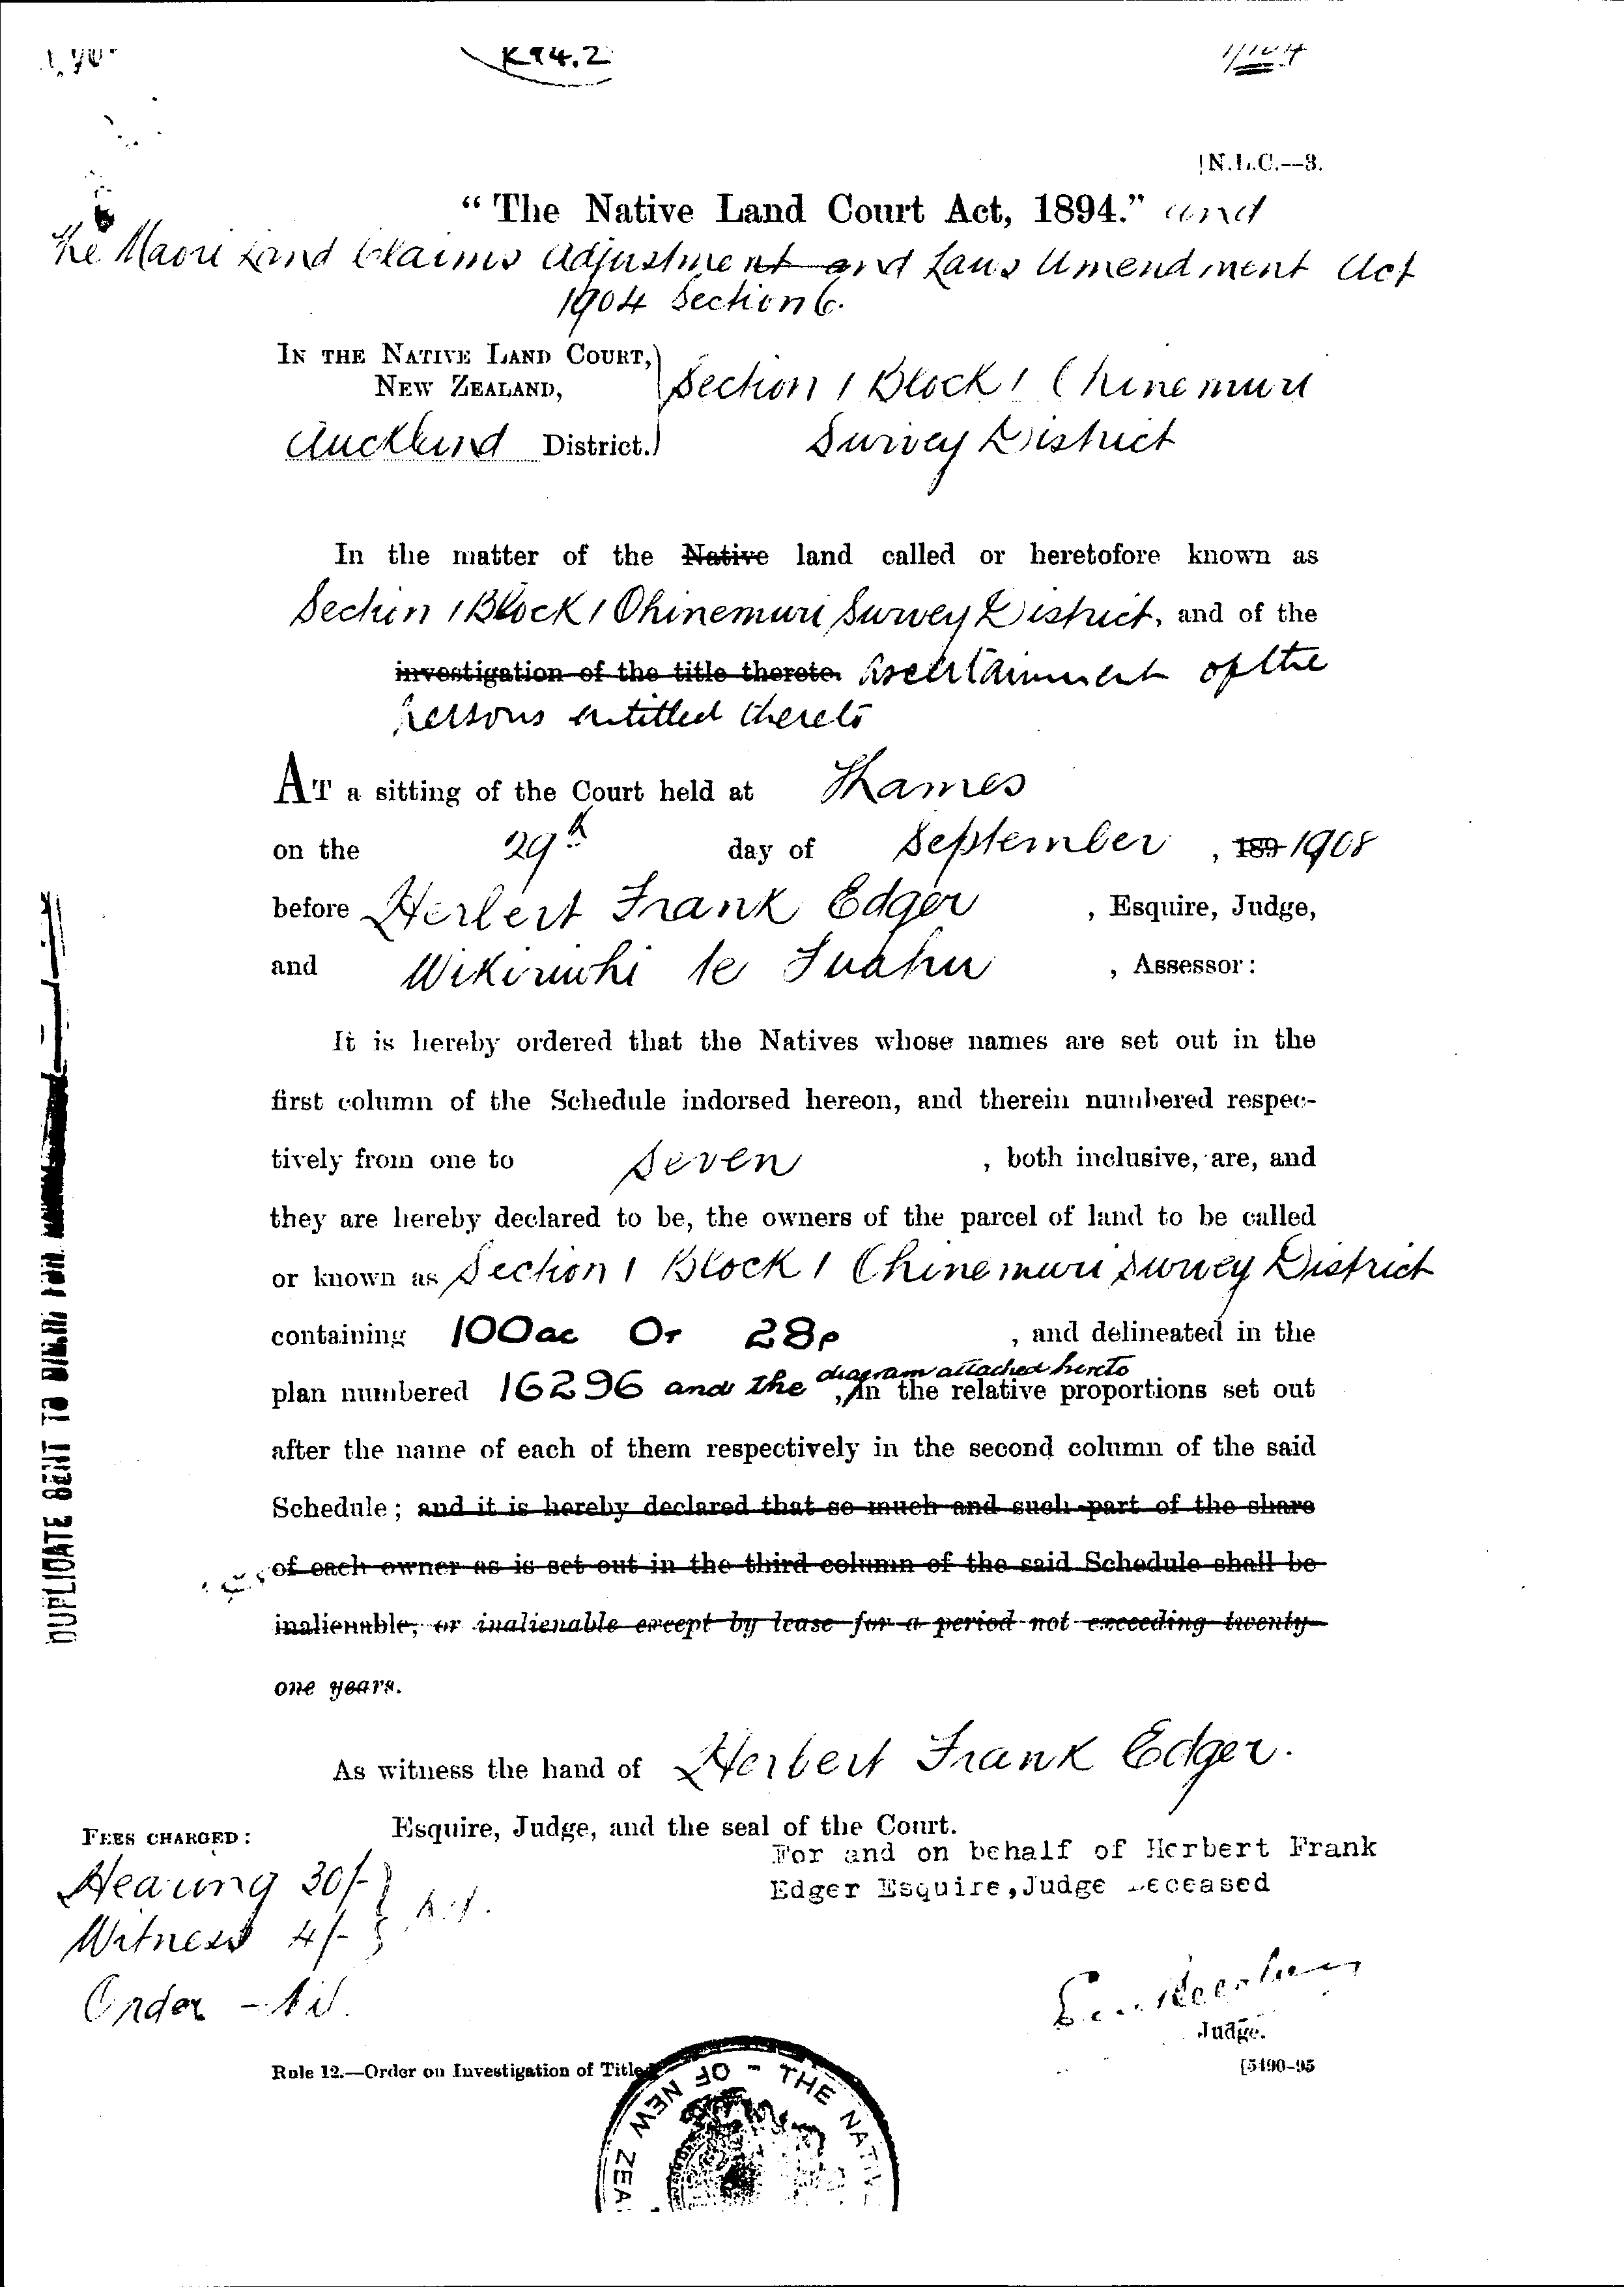 K94.2
N.L.C.—3.
"The Native Land Court Act, 1894." and
the Maori Land Claims Adjustment and Laws Amendment Act
1904 Section 6.
IN THE NATIVE LAND COURT,
NEW ZEALAND,
Auckland District.
Section 1 Block 1 Ohinemuri
Survey District
In the matter of the Native land called or heretofore known as
Section 1 Block 1 Ohinemuri Survey District, and of the
investigation of the title thereto. ascertainment of the
persons entitled thereto
AT a sitting of the Court held at Thames
on the 29th day of September , 189 1908
before Herbert Frank Edger , Esquire, Judge,
and Wikiriwhi te Tuahu , Assessor:
It is hereby ordered that the Natives whose names are set out in the
first column of the Schedule indorsed hereon, and therein numbered respec-
tively from one to seven , both inclusive, are, and
they are hereby declared to be, the owners of the parcel of land to be called
or known as Section 1 Block 1 Ohinemuri Survey District
containing 100ac 0r 28p , and delineated in the
plan numbered 16296 and the diagram attached hereto , in the relative proportions set out
after the name of each of them respectively in the second column of the said
Schedule; and it is hereby declared that so much and such part of the share
of each owner as is set out in the third column of the said Schedule shall be
inalienable, or inalienable except by lease for a period not exceeding twenty-
one years.
As witness the hand of Herbert Frank Edger.
Esquire, Judge, and the seal of the Court.
For and on behalf of Herbert Frank
Edger Esquire, Judge Deceased
FEES CHARGED:
Hearing 30/-
Witness 4/-
Order - Nil.
Judge.
Rule 12.—Order on Investigation of Title
[5490-95
OF NEW ZEA
- THE NATIV
DUPLICATE SENT TO